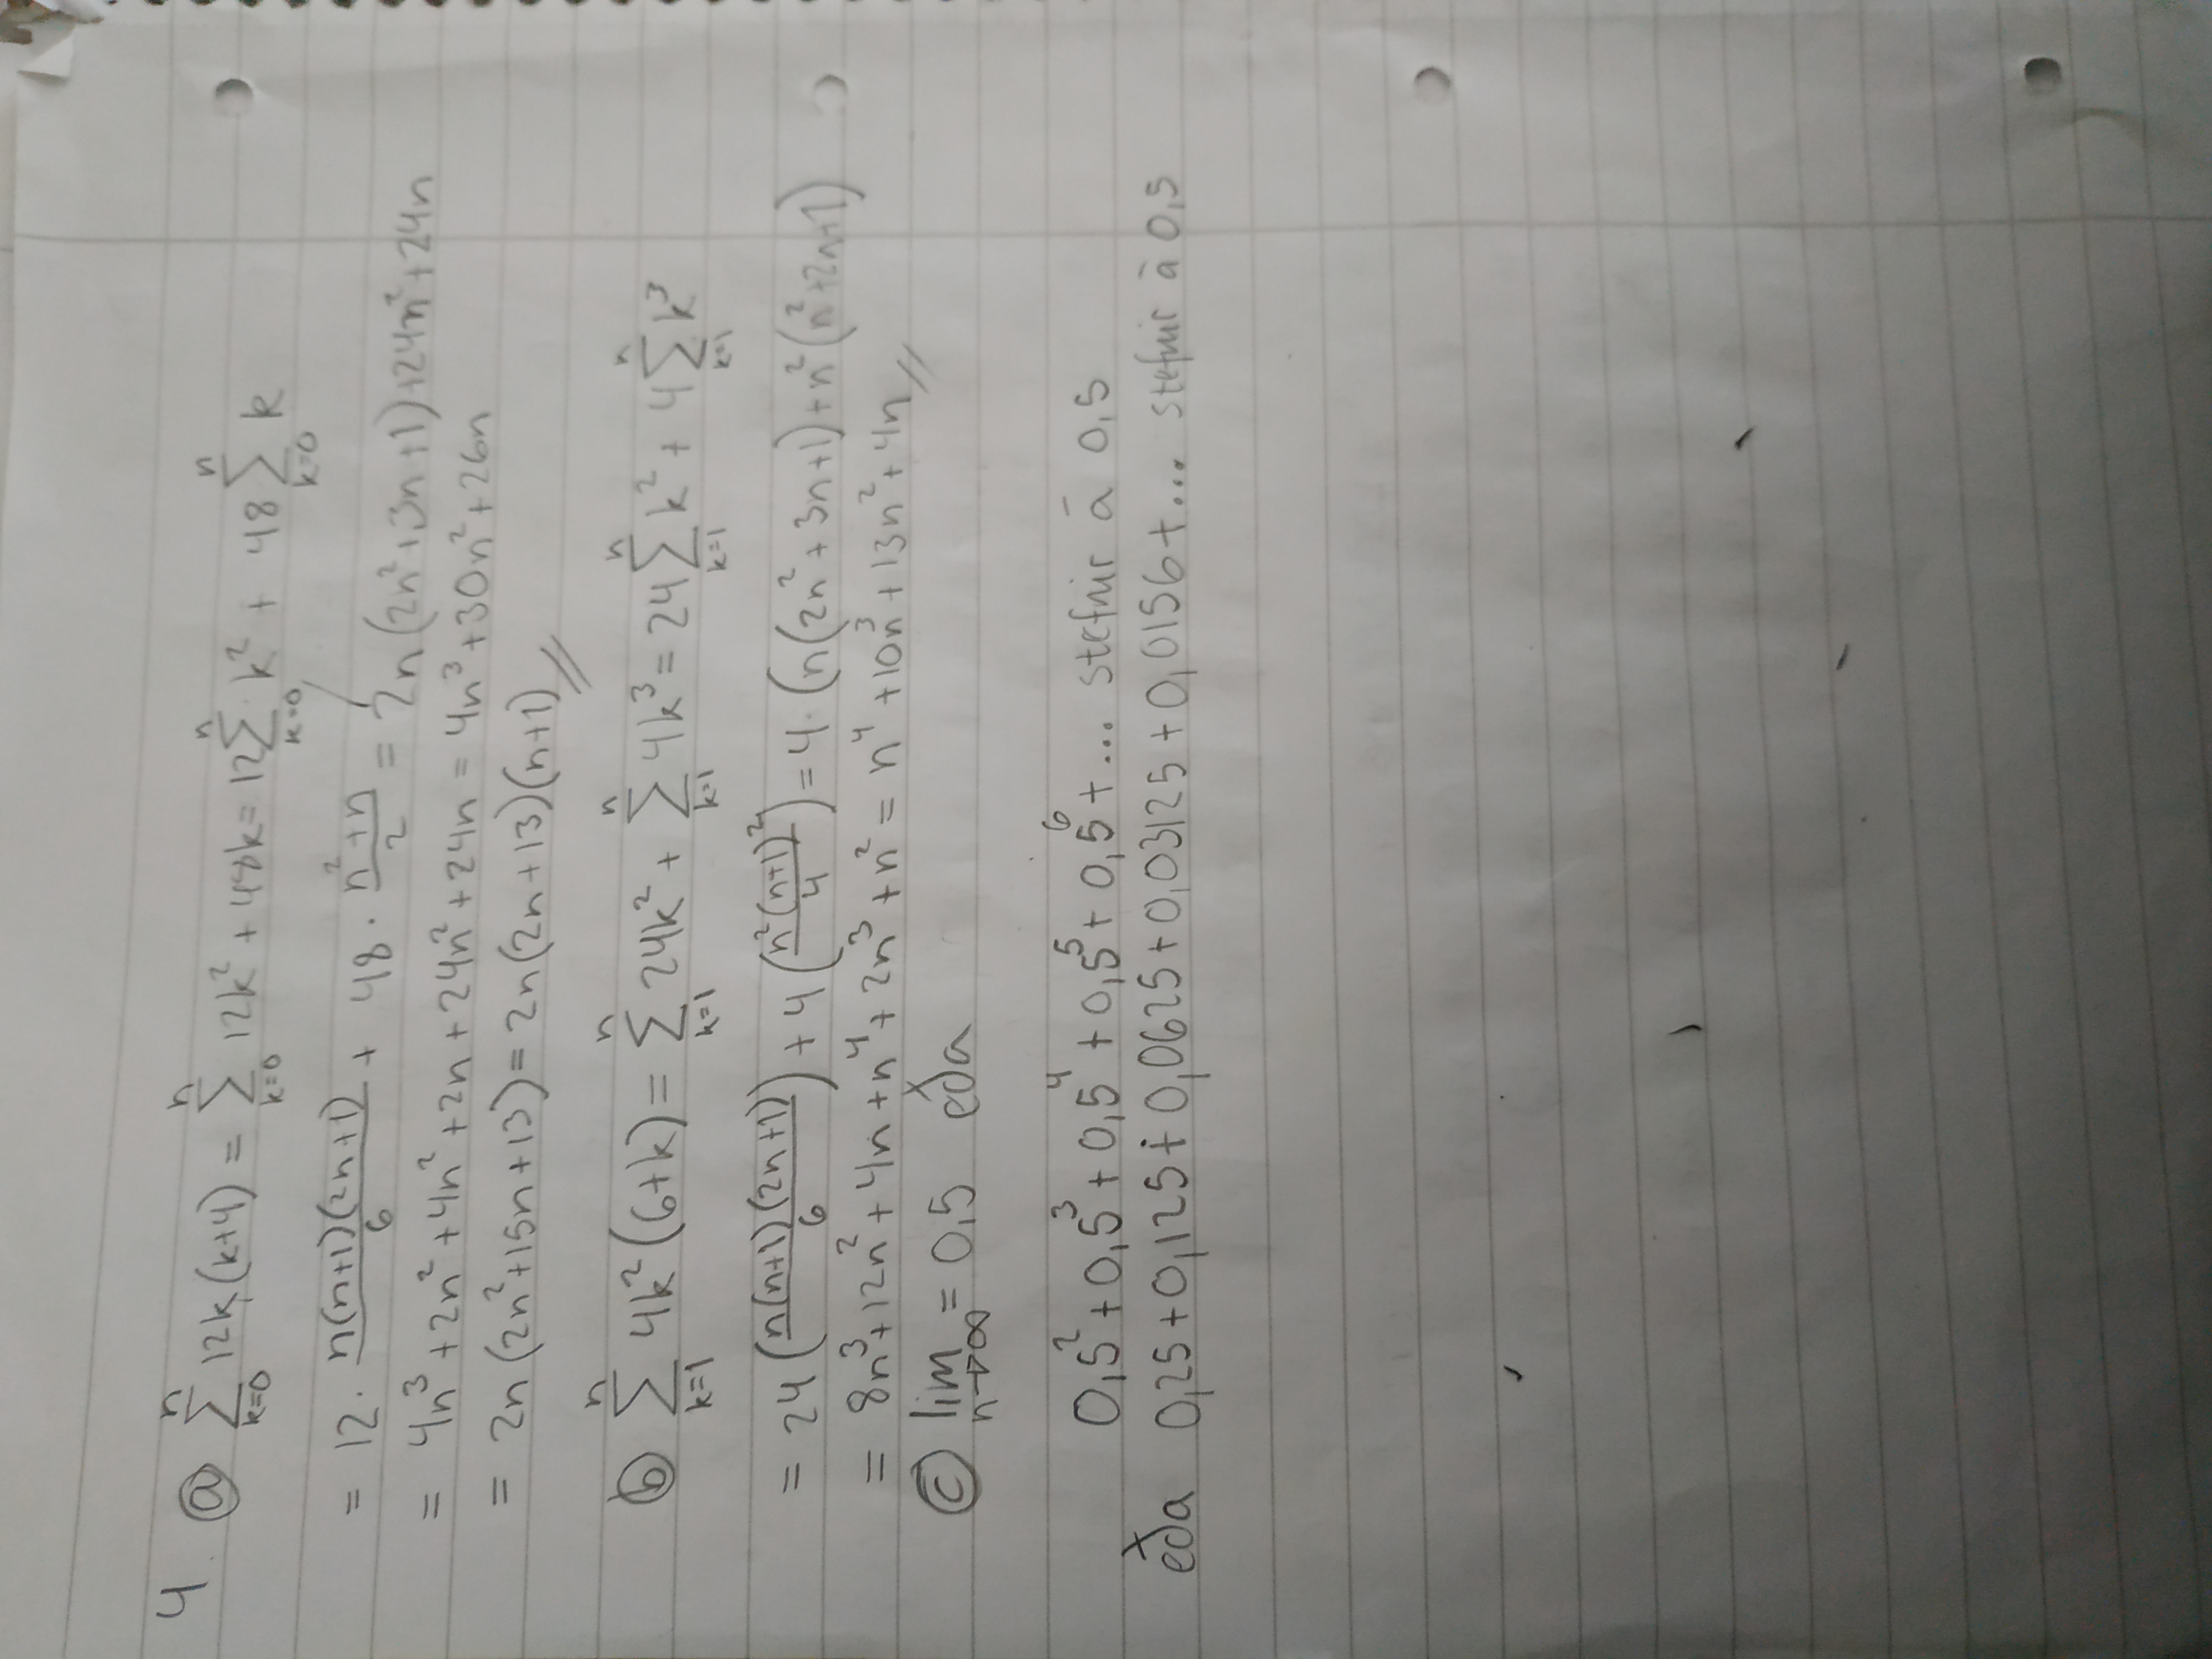 4. ⓐ ∑_{k=0}^{n} 12k(k+4) = ∑_{k=0}^{n} 12k² + 48k = 12∑_{k=0}^{n} k² + 48∑_{k=0}^{n} k
= 12 · n(n+1)(2n+1)/6 + 48 · (n²+n)/2 = 2n(2n²+3n+1)+24n²+24n
= 4n³+2n²+4n²+2n+24n²+24n = 4n³+30n²+26n
= 2n(2n²+15n+13) = 2n(2n+13)(n+1) //
ⓑ ∑_{k=1}^{n} 4k²(6+k) = ∑_{k=1}^{n} 24k² + ∑_{k=1}^{n} 4k³ = 24∑_{k=1}^{n} k² + 4∑_{k=1}^{n} k³
= 24(n(n+1)(2n+1)/6) + 4(n²(n+1)²/4) = 4·(n(2n²+3n+1)+n²(n²+2n+1)
= 8n³+12n²+4n+n⁴+2n³+n² = n⁴+10n³+13n²+4n //
ⓒ lim_{n→∞} = 0,5 eða
0,5²+0,5³+0,5⁴+0,5⁵+0,5⁶+... stefnir á 0,5
eða 0,25+0,125+0,0625+0,03125+0,0156+... stefnir á 0,5